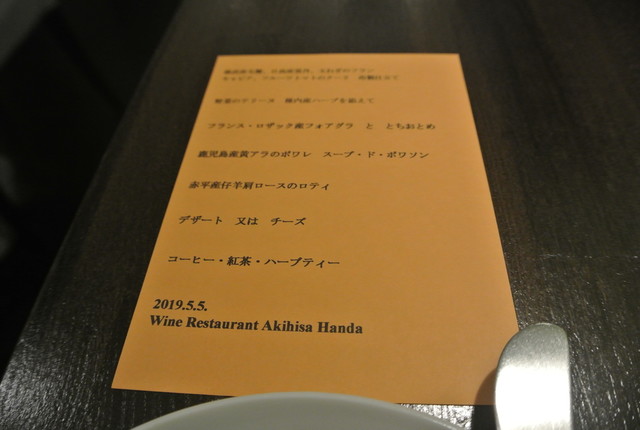 野菜のテリーヌ 稚内産ハーブを添えて
フランス・ロザック産フォアグラ と とちおとめ
鹿児島産黄アラのポワレ スープ・ド・ポワソン
赤平産仔羊肩ロースのロティ
デザート 又は チーズ
コーヒー・紅茶・ハーブティー
2019.5.5.
Wine Restaurant Akihisa Handa